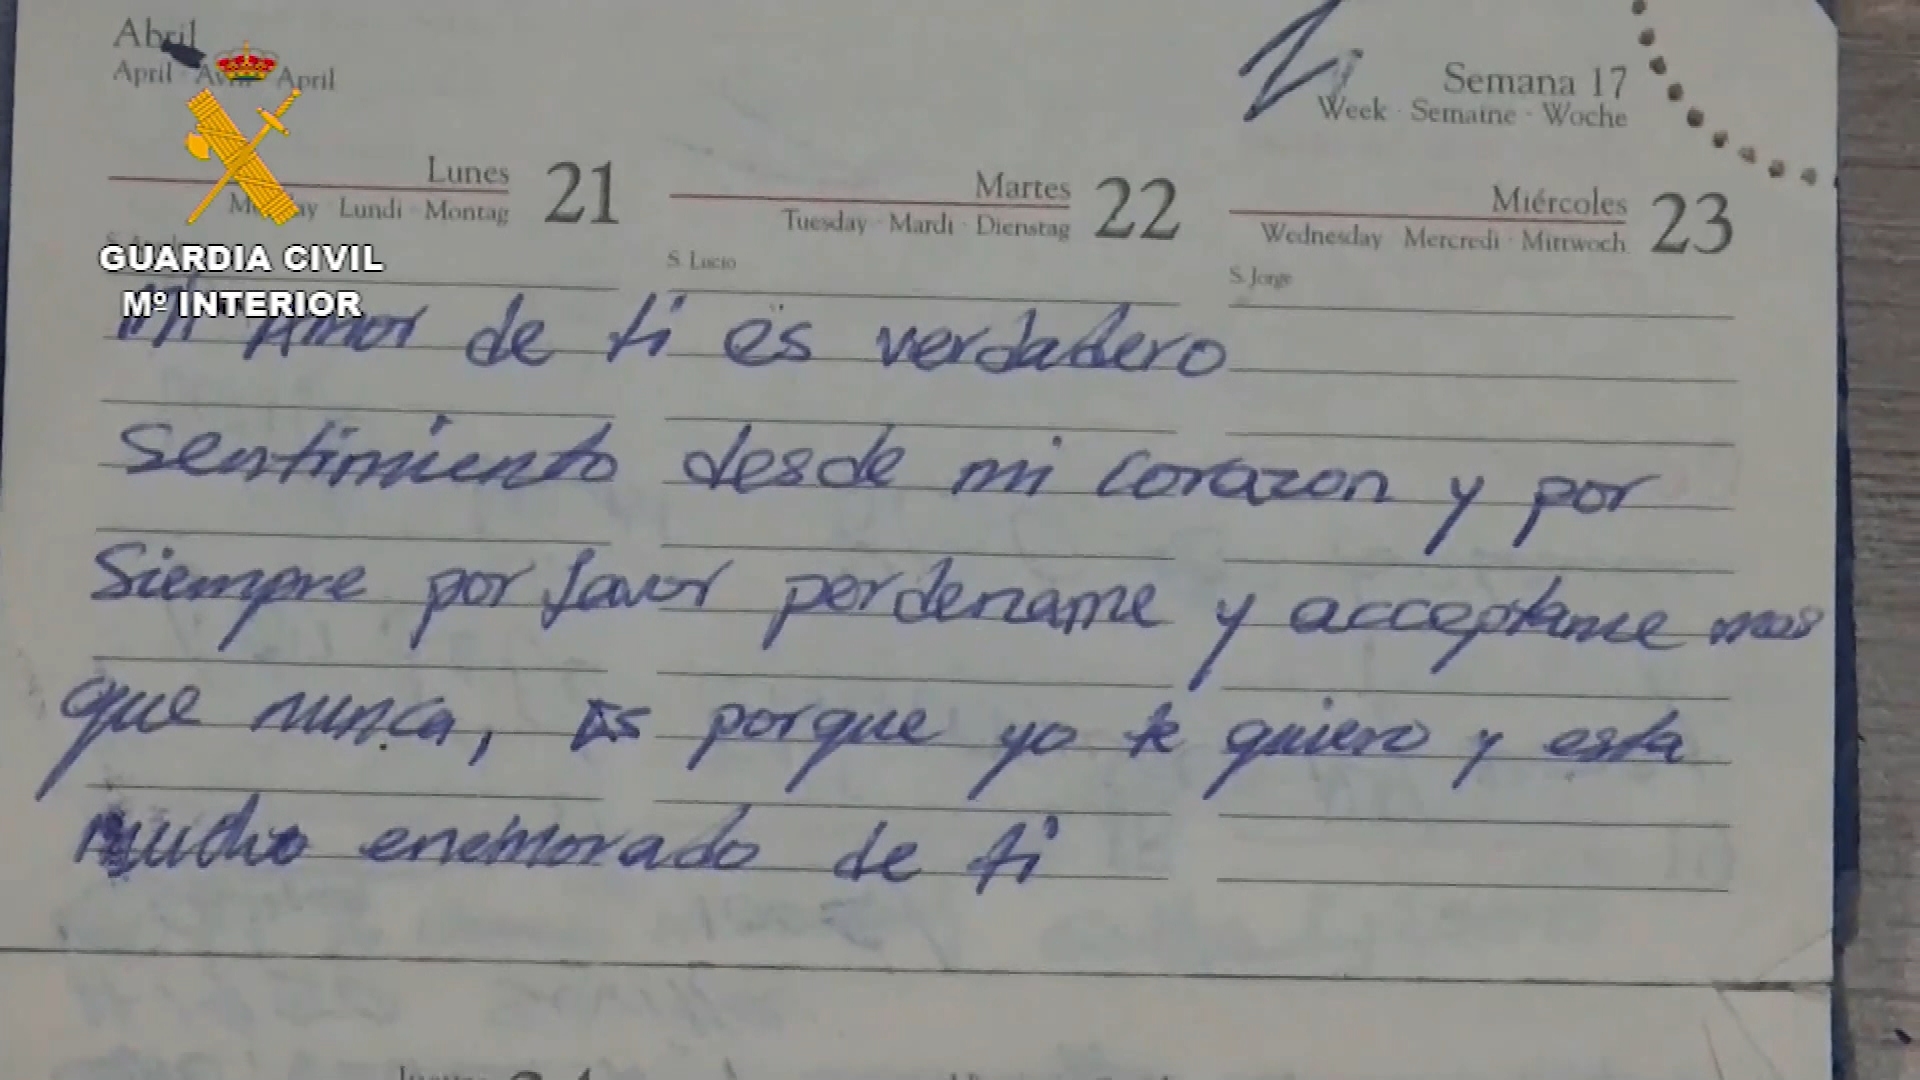 Abril
April · Avril · April
Semana 17
Week · Semaine · Woche
Lunes 21
Monday · Lundi · Montag
Martes 22
Tuesday · Mardi · Dienstag
Miércoles 23
Wednesday · Mercredi · Mittwoch
S. Lucio
S. Jorge
GUARDIA CIVIL
Mº INTERIOR
Mi Amor de ti es verdadero
Sentimiento desde mi corazon y por
Siempre por favor perdename y acceptame mas
que nunca, Es porque yo te quiero y esta
mucho enemorado de ti